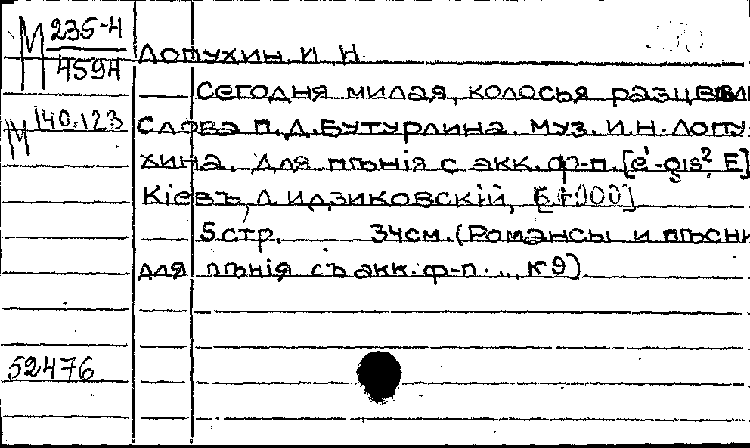 М 235-Н
459А
Лопухин, И. Н.
Сегодня милая, колосья разцвели
М 140.123
Слова П.Д.Бутурлина. Муз. И.Н.Лопу-
хина. Для пѣнія с акк. ф-п. [e'-gis², E]
Кіевъ, Л.Идзиковскій,
5 стр. 34см. (Романсы и пѣсни
для пѣнія съ акк. ф-п. ... №9).
52476